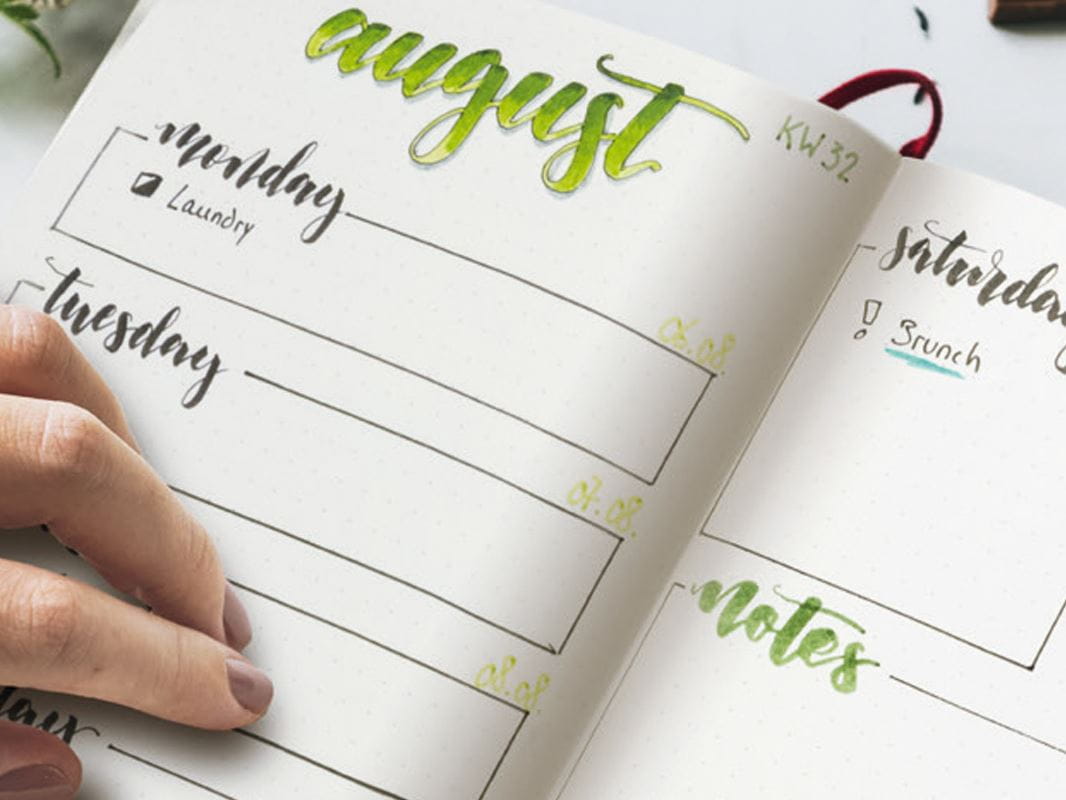 august
KW 32
monday
Laundry
06.08.
tuesday
07.08.
08.08.
saturday
! Brunch
notes